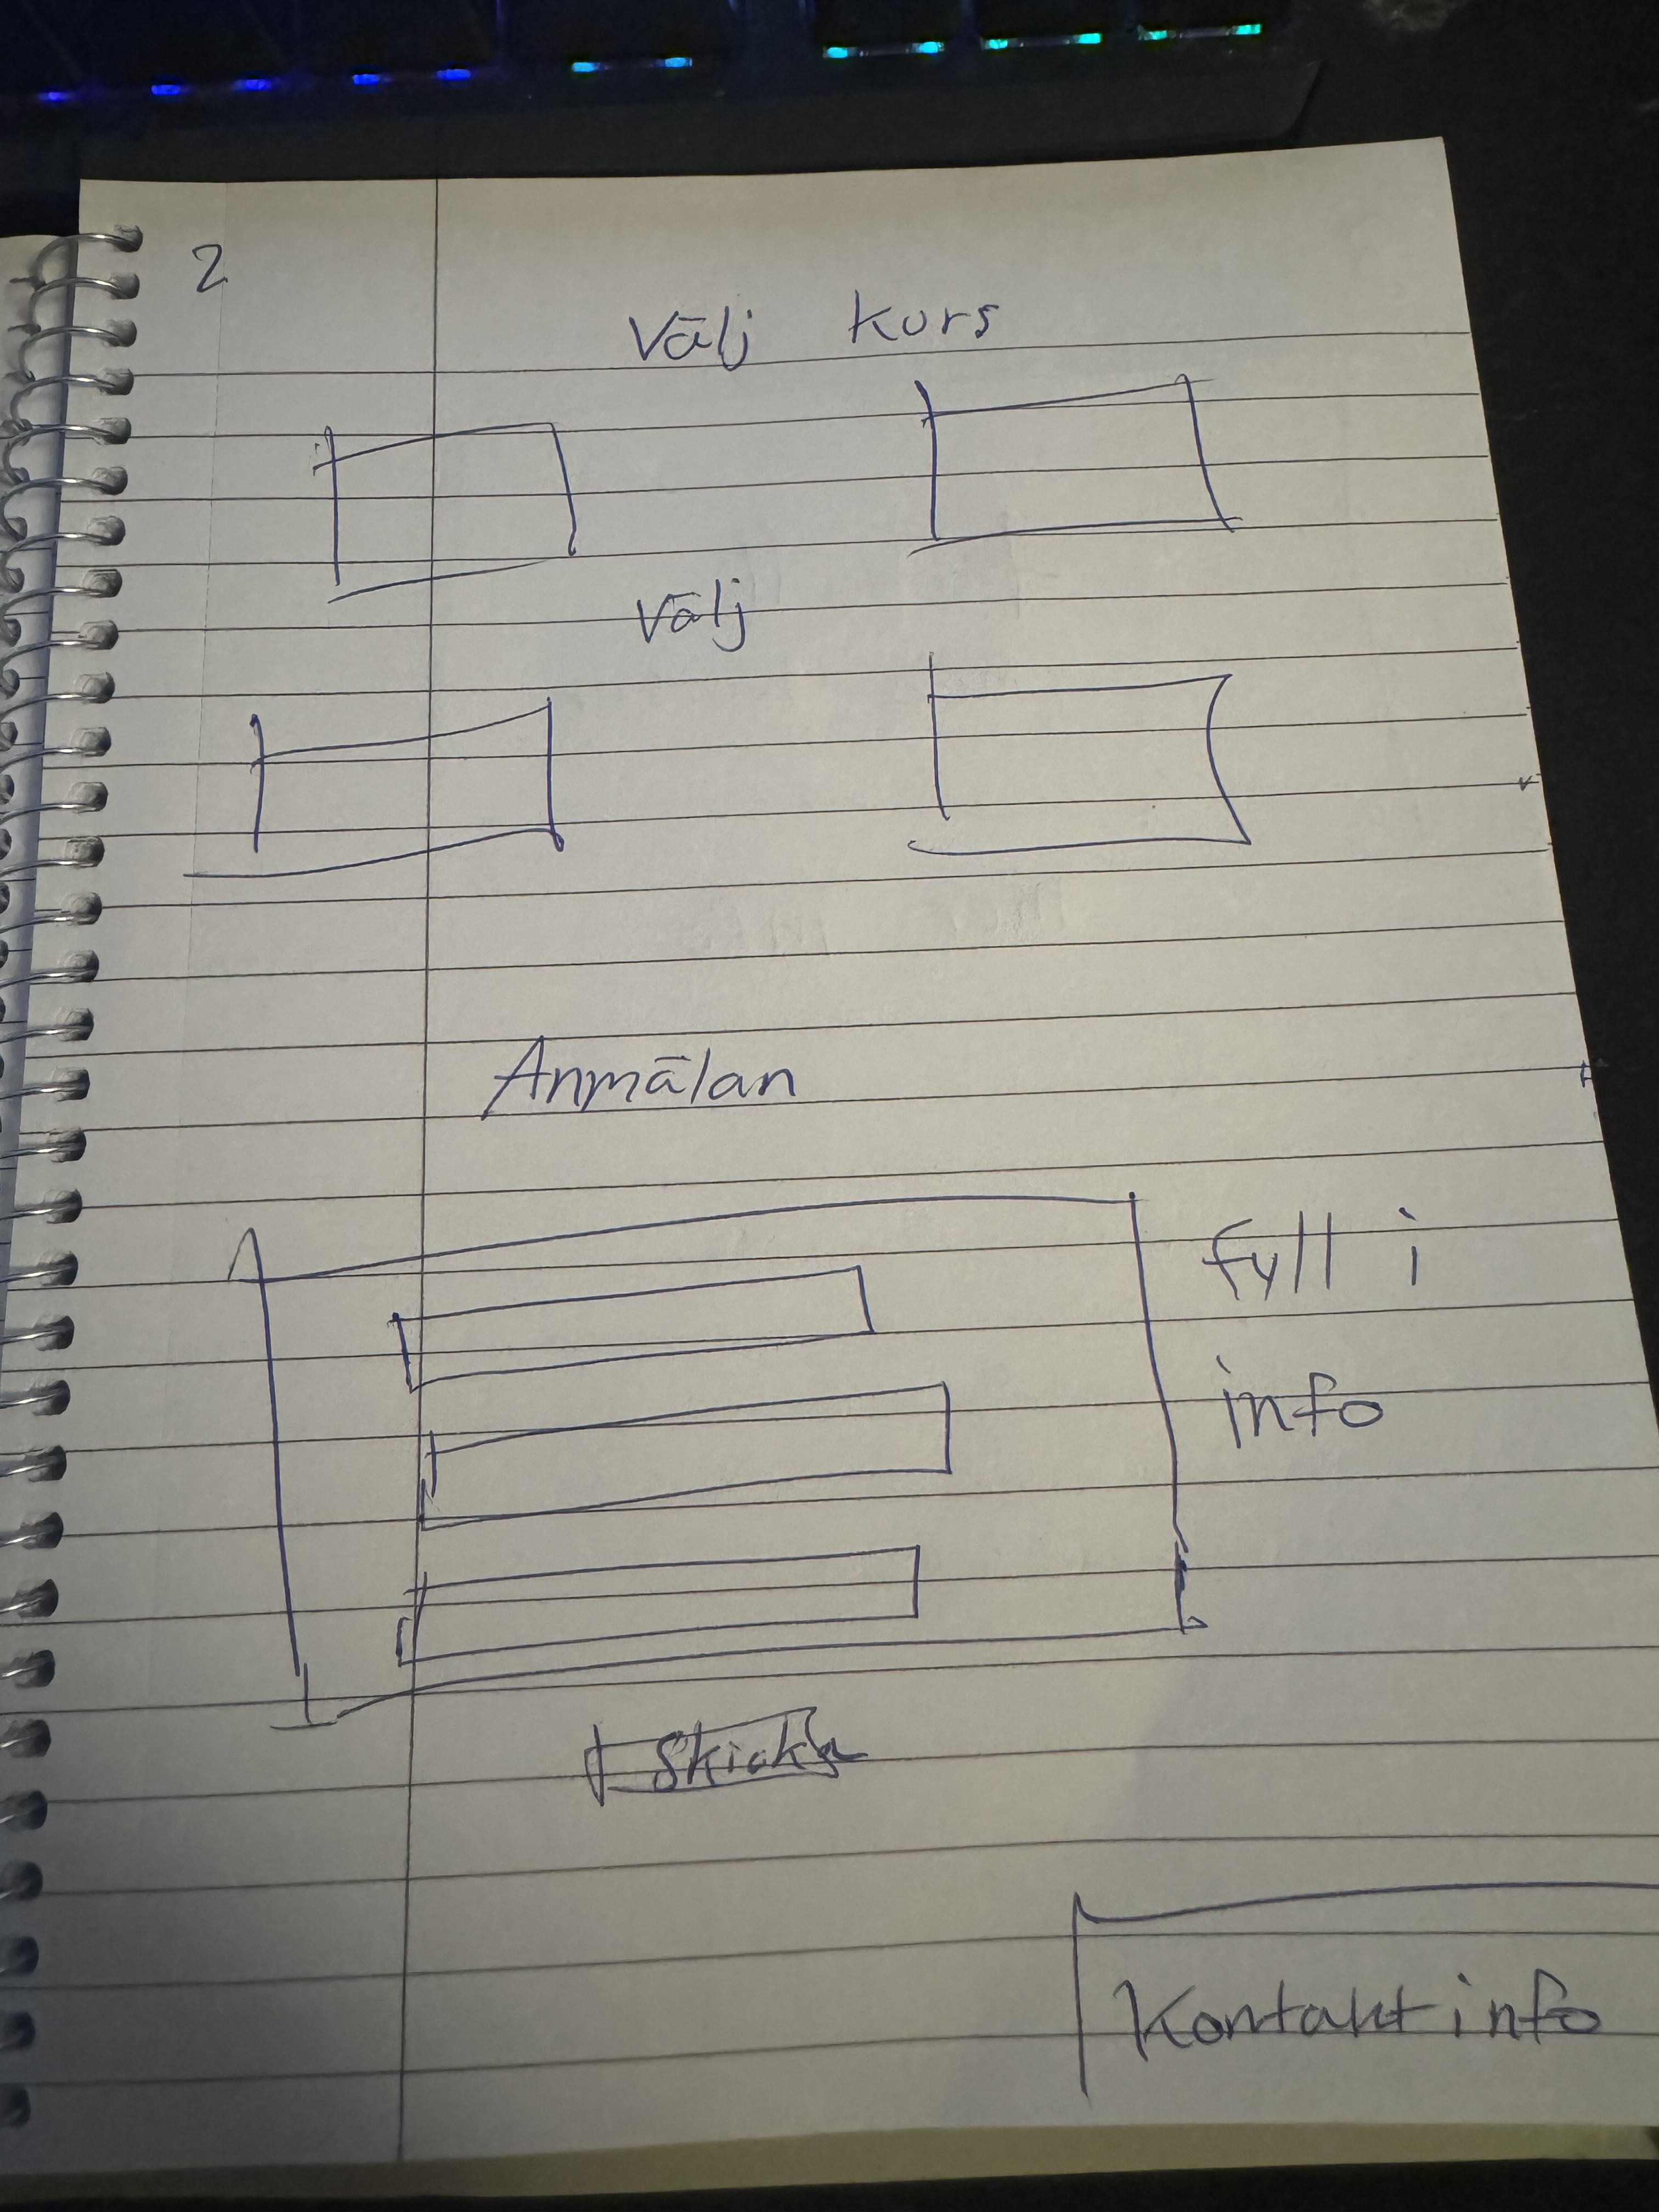 2
Välj kurs
Välj
Anmälan
fyll i
info
Skicka
Kontakt info